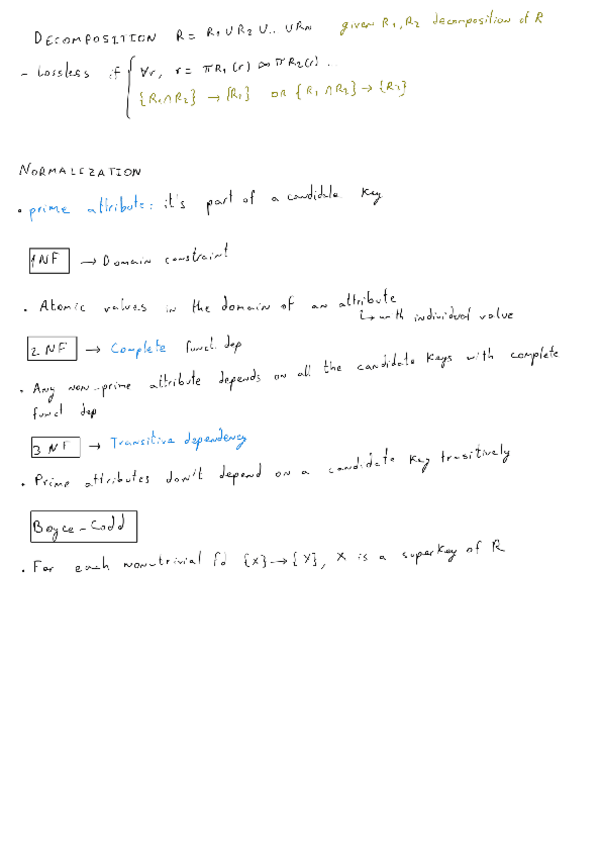 DECOMPOSITION R = R1 ∪ R2 ∪ .. ∪ Rn given R1, R2 decomposition of R
- Lossless if { ∀r, r = πR1(r) ⋈ πR2(r) ..
{R1 ∩ R2} → {R1} OR {R1 ∩ R2} → {R2}
NORMALIZATION
• prime attribute: it's part of a candidate key
1NF → Domain constraint
• Atomic values in the domain of an attribute
↳ with individual value
2 NF → Complete funct. dep
• Any non-prime attribute depends on all the candidate keys with complete
funct dep
3 NF → Transitive dependency
• Prime attributes don't depend on a candidate key trasitively
Boyce-Codd
• For each non-trivial fd {X} → {Y}, X is a superkey of R